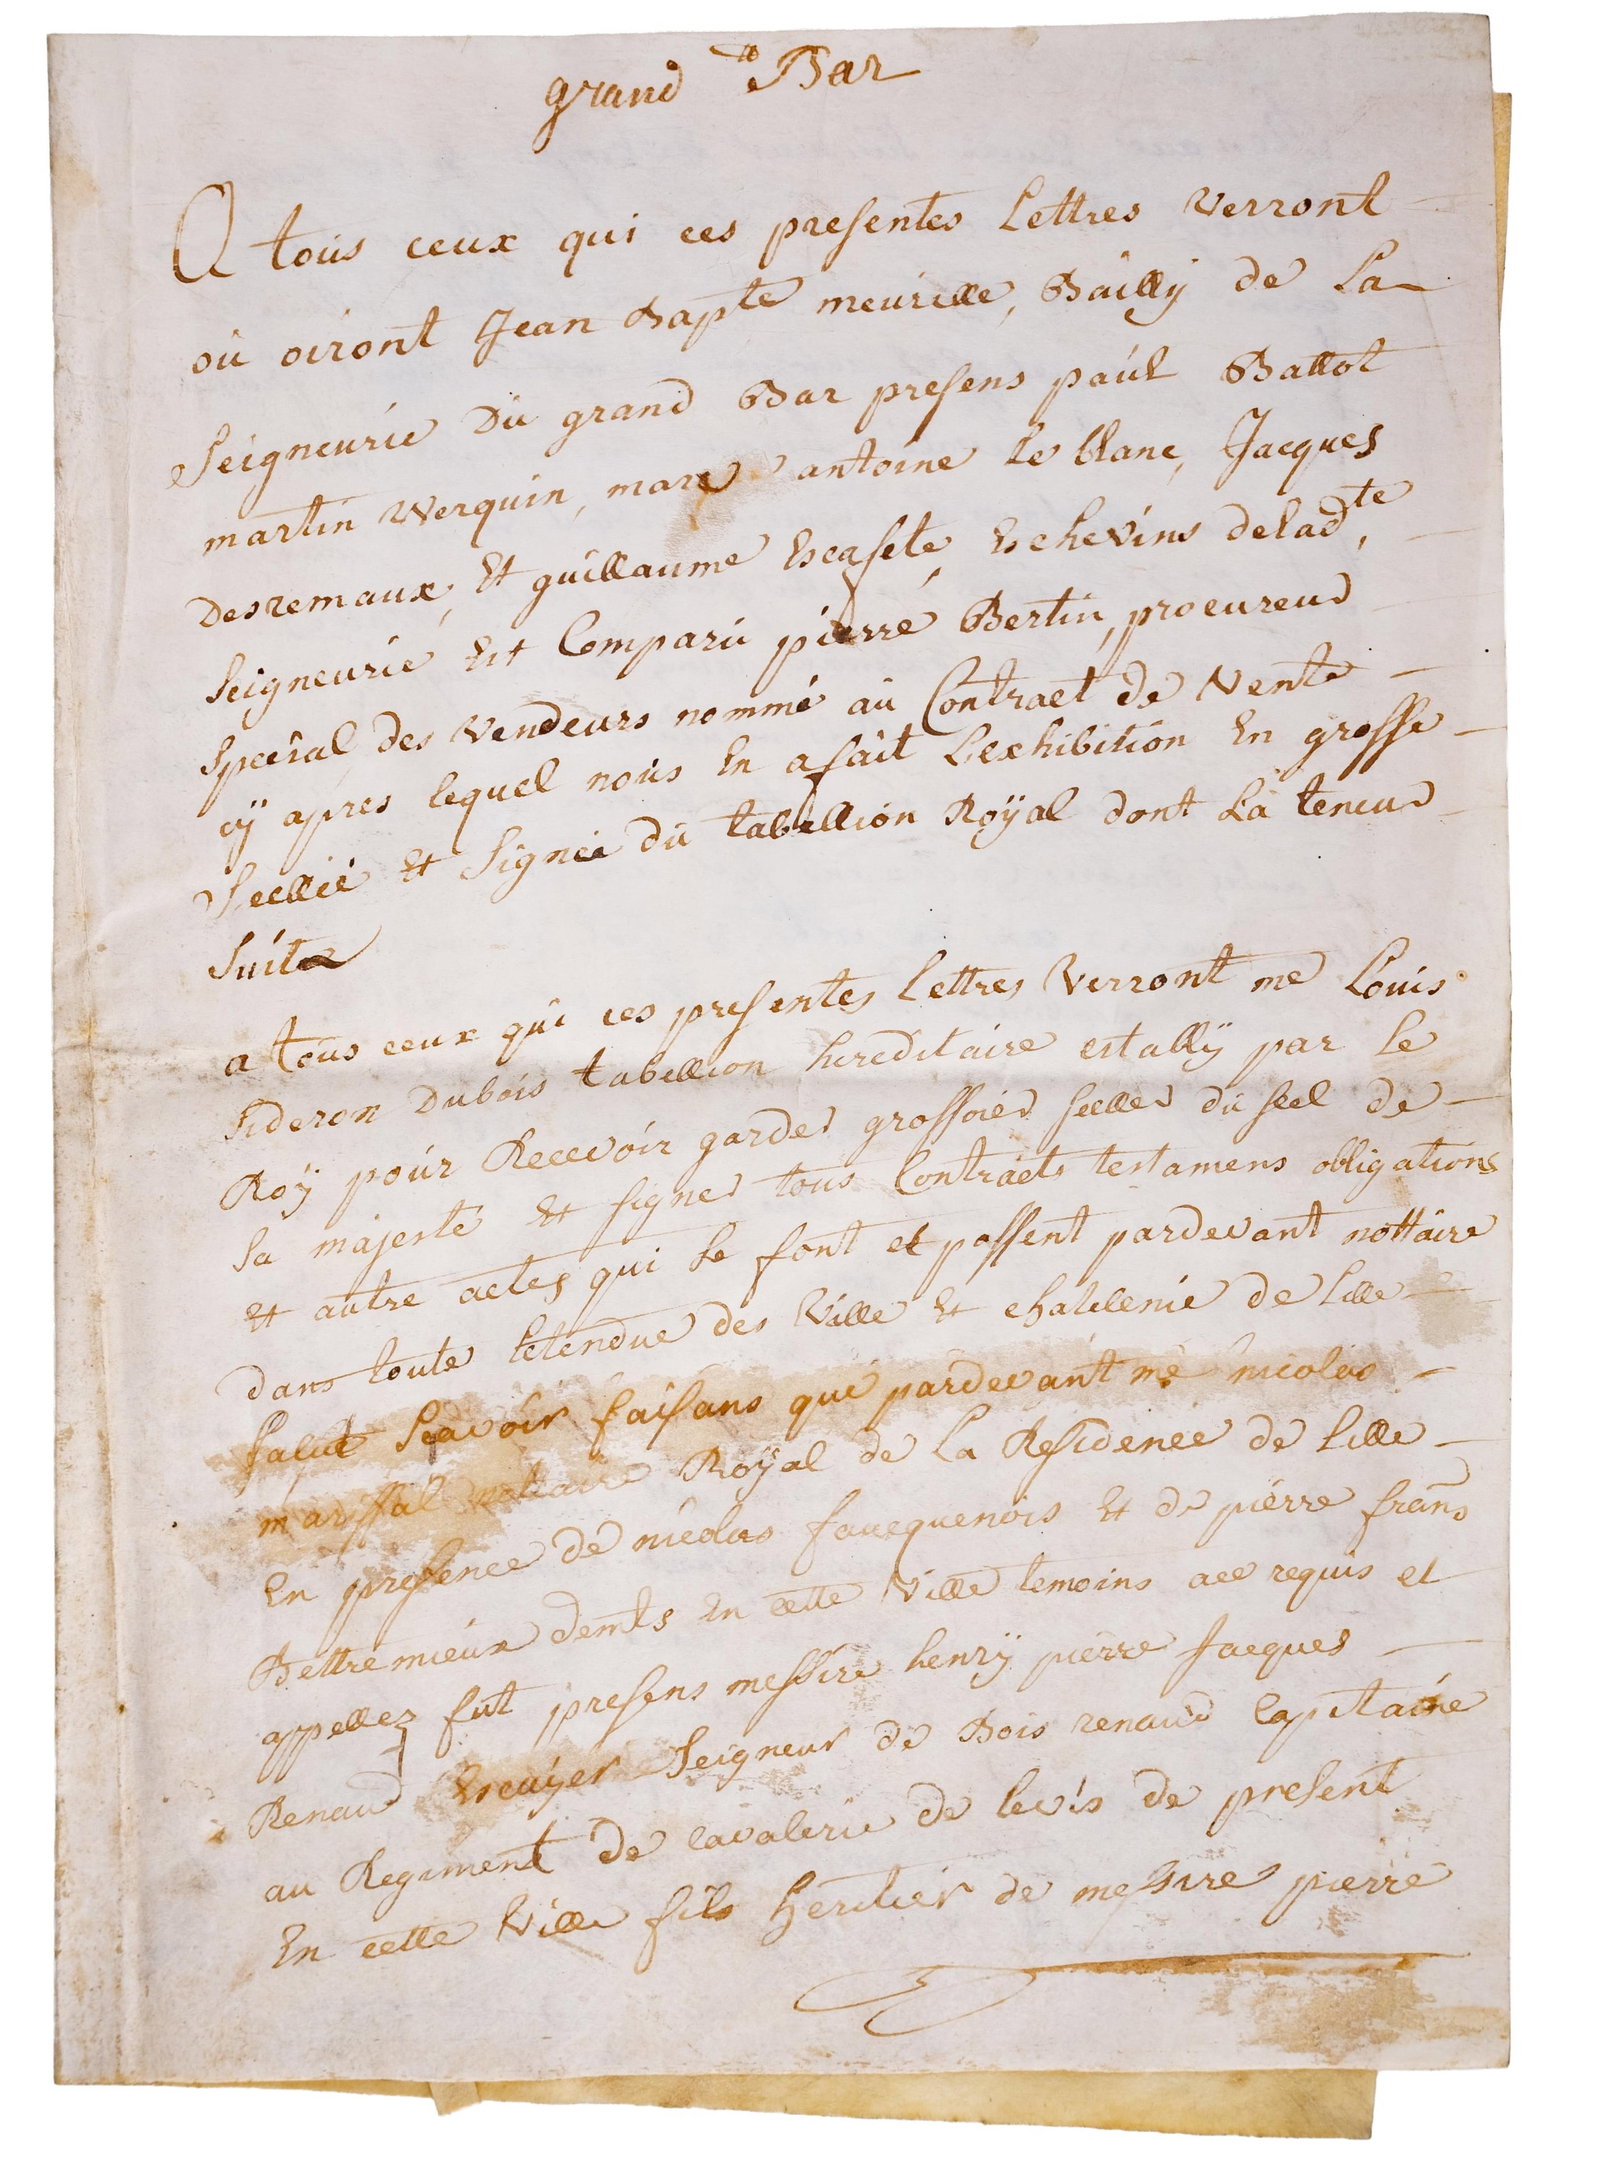 grand Bar
A tous ceux qui ces presentes Lettres Verront
ou oiront Jean Bapte meurille, Bailly de La
Seigneurie Du grand Bar presens paul Battot
martin Werquin, marc antoine Le blanc, Jacques
Desremaux, Et guillaume Escafete, Eschevins deladte,
Seigneurie Est Comparu pierre Bertin, procureur
special des Vendeurs nommé au Contract de Vente
cÿ apres lequel nous En a fait L'exhibition En grosse
Scellée Et Signée du tabellion Roÿal dont La teneur
Suit
a tous ceux qui ces presentes Lettres Verront me Louis
Sideron Dubois tabellion hereditaire establÿ par le
Roÿ pour Recevoir garder grossoier sceller du scel de
Sa majesté Et signer tous Contracts testamens obligations
Et autre actes qui se font et passent pardevant nottaire
dans toute letendue des Ville Et chatelenie de Lille
Salut Scavoir faisans que pardevant me nicolas
marissal nottaire Roÿal de La Residence de Lille
En presence de nicolas faucquenois Et de pierre frans
Bettremieux demts En cette Ville temoins acc requis et
appellez fut presens messire henrÿ pierre Jacques
Renaud Escuÿer Seigneur de Bois renaud Capitaine
au Regiment de cavalerie de levis de present
En cette Ville fils heritier de messire pierre